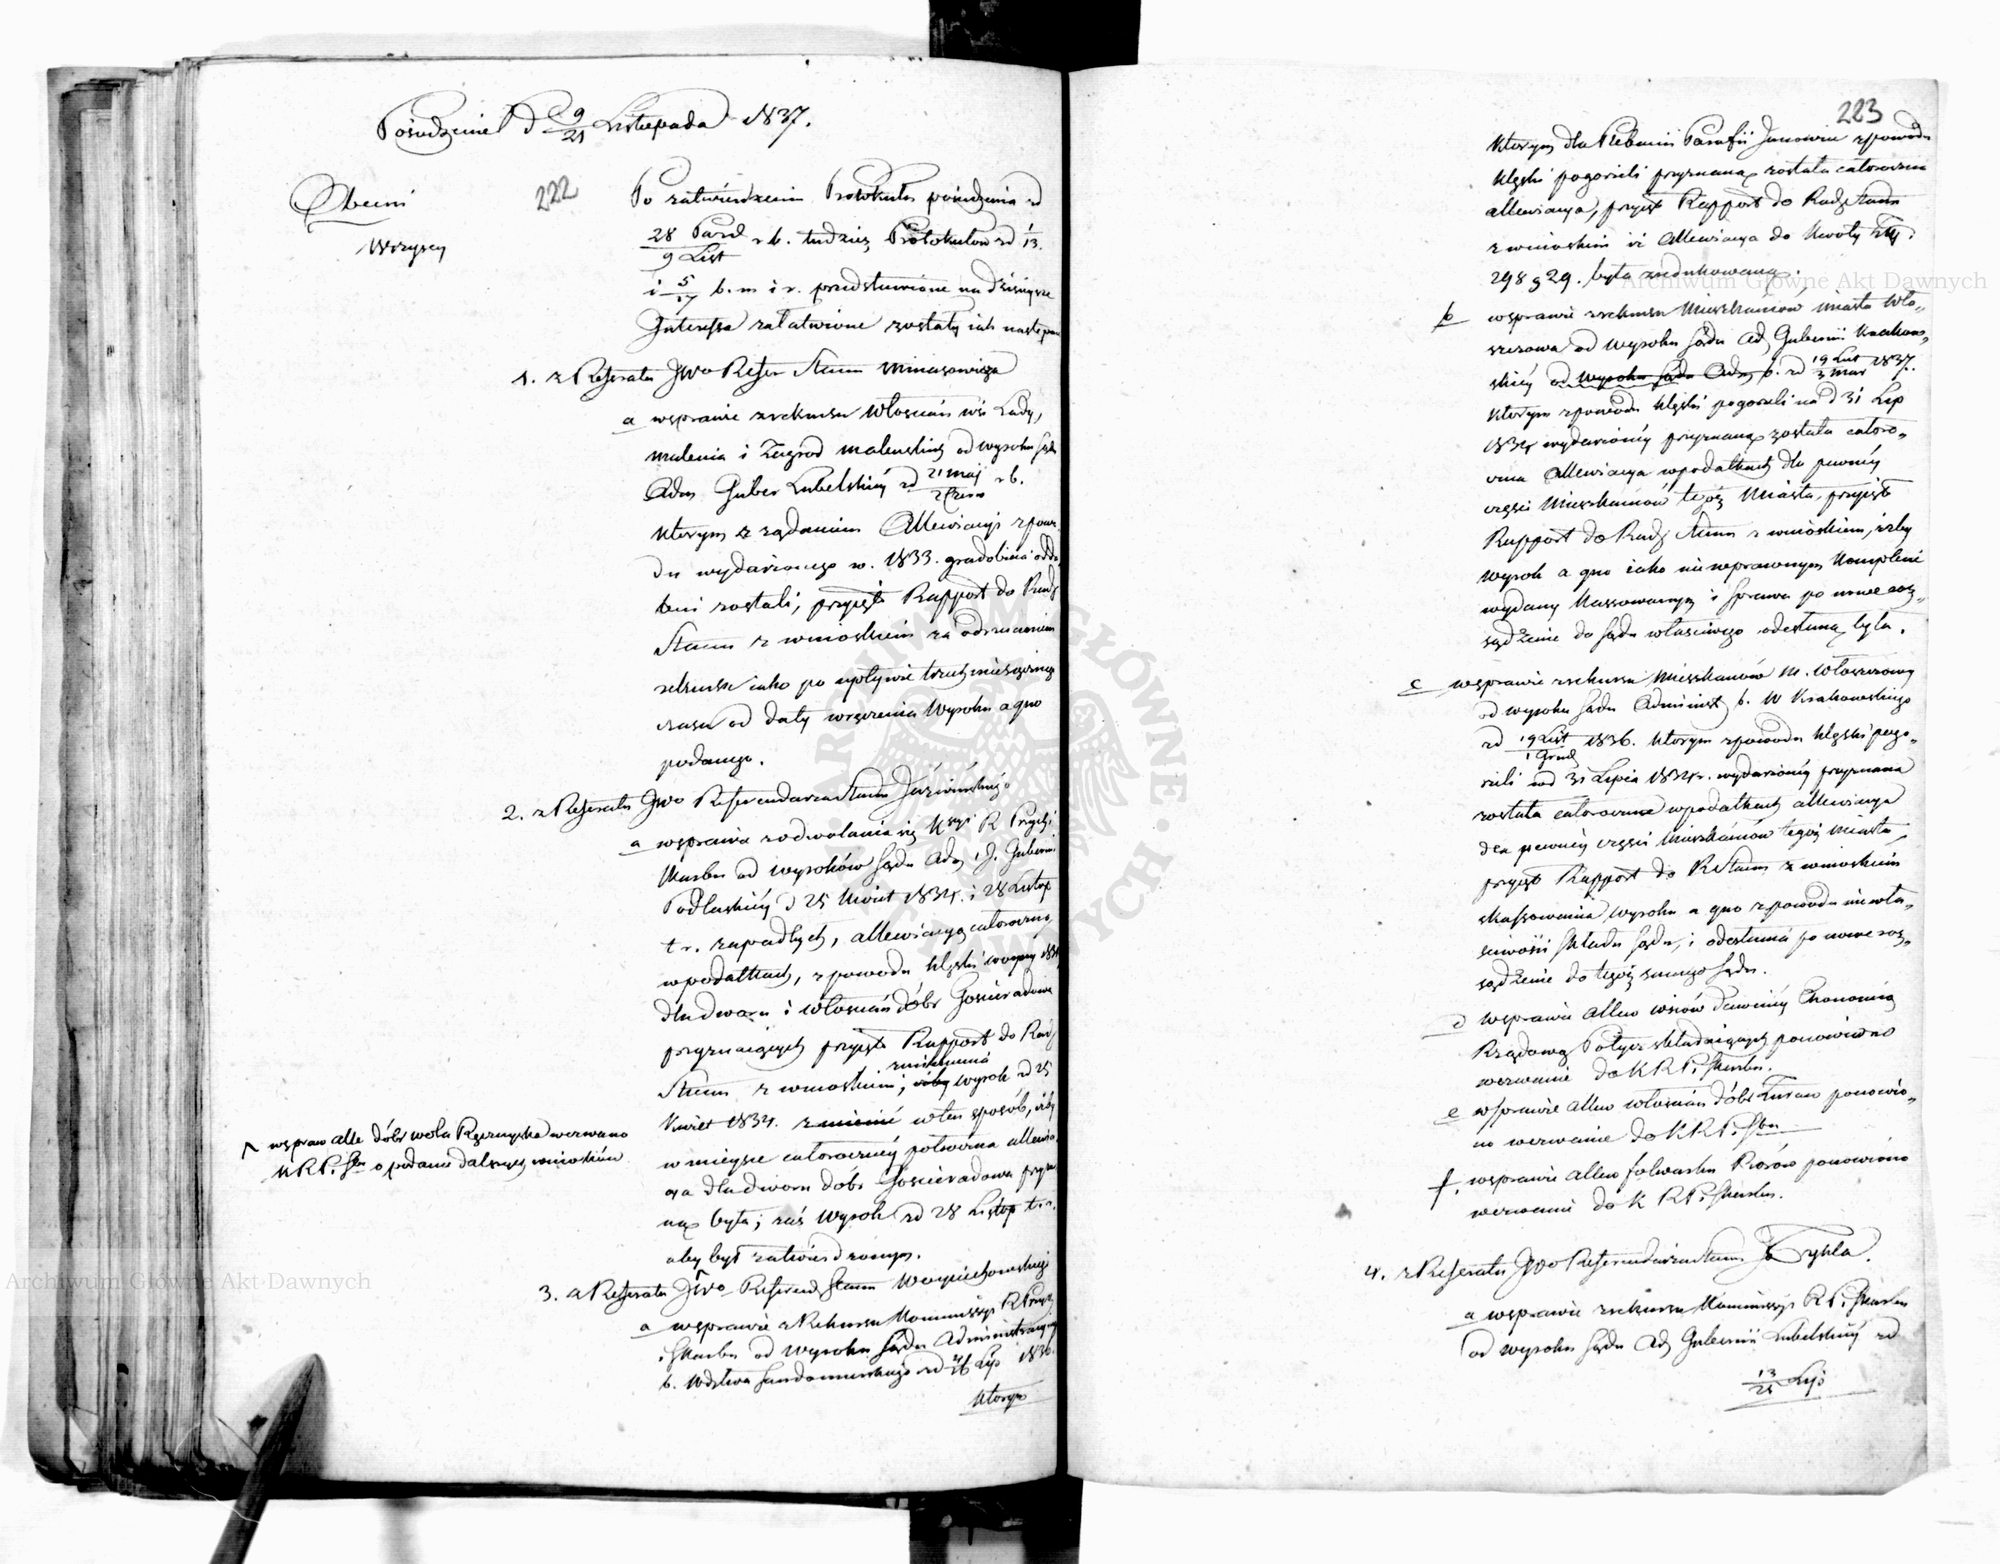 Posiedzenie d 9/21 Listopada 1837.
222
Obecni
Wszyscy
Po zatwierdzeniu Protokułu posiedzenia zd
28 Paźd/9 List r b. tudzież Protokułów zd 1/13.
i 5/17 b. m i r. przedstawione na dzisieysze
Interessa załatwione zostały iak następuie
1. z Referatu JWo Refer Stanu Minasowicza
a w sprawie z rekursu Włościan wsi Lady,
Malenia i Zagród malenskich od wyroku Sądu
Adm Guber Lubelskiey zd 21 Maj/2 Czerw r b.
którym z żądaniem Allewiacyi z powo
du wydarzonego w r. 1833. gradobicia odda
leni zostali, przyięto Rapport do Rady
Stanu z wnioskiem za odrzuceniem
rekursu iako po upływie trzech miesięcznego
czasu od daty wręczenia Wyroku a quo
podanego.
2. z Referatu JWo Referendarza Stanu Jaźwińskiego
a w sprawie z odwołania się Kssyi R Przych i
Skarbu od wyroków Sądu Adm i J. Gubernii
Podlaskiey d 25 Kwiet 1834. i 28 Listop
t r. zapadłych, allewiacyą całoroczną
w podatkach, z powodu klęski woyny 1831
dla dworu i włościan dóbr Gościeradowa
przyznaiących przyięto Rapport do Rady
Stanu z wnioskiem, Wyrok zd 25
Kwiet 1834. w ten sposób, iżby
w mieysce całoroczney półroczna allewia
cya dla dworu dóbr Gościeradowa przyzna
ną była; zaś Wyrok zd 28 Listop t. r.
aby był zatwierdzonym.
^ w spraw alle dóbr Wola Rzeczycka wezwano
K R P. Sbu o podanie dalszych wniosków
3. z Referatu JWo Referend Stanu Woyciechowskiego
a w sprawie z Rekursu Kommissyi R Przych
i Skarbu od wyroku Sądu Administracyinego
b. Wdztwa Sandomirskiego zd 26 Lip 1836.
którym
223
którym dla Plebanii Parafii Janowiec z powodu
klęski pogorzeli przyznaną została całoroczna
allewiacya, przyięto Rapport do Rady Stanu
z wnioskiem iż Allewiacya do kwoty Złp.
298 g 29. była zredukowaną.
b w sprawie z rekursu Mieszkańców miasta Wło-
szczowa od wyroku Sądu Adm Gubernii Krakow-
skiey od Wyroku Sądu Adm b. zd 19 Lut/3 Mar 1837.
którym z powodu klęski pogorzeli na d 31 Lip
1834 wydarzoney przyznaną została całoro-
czna Allewiacya w podatkach dla pewney
części Mieszkańców tegoż Miasta, przyięto
Rapport do Rady Stanu z wnioskiem, iżby
wyrok a quo iako w nieprawnym komplecie
wydany kassowanym i sprawa po nowe roz-
sądzenie do Sądu właściwego odesłaną była.
c w sprawie z rekursu Mieszkańców M. Włoszczowy
od wyroku Sądu Administ b. W Krakowskiego
zd 19 List/1 Grud 1836. którym z powodu klęski pogo-
rzeli na d 31 Lipca 1834 r. wydarzoney przyznana
została całoroczna w podatkach allewiacya
dla pewney części Mieszkańców tegoż Miasta,
przyięto Rapport do R Stanu z wnioskiem
skassowania Wyroku a quo z powodu niewła-
ściwości składu Sądu, i odesłania po nowe roz-
sądzenie do tegoż samego Sądu.
d w sprawie Allew wsiów dawniey Ekonomią
Rządową Połycz składaiących ponowiono
wezwanie do K R P. Skarbu.
e w sprawie Allew włościan dóbr Żurawo ponowio-
no wezwanie do K R P. Sbu
f. w sprawie Allew folwarku Piorów ponowiono
wezwanie do K R P. Skarbu.
4. z Referatu JWo Referendarza Stanu Trykla.
a w sprawie z rekursu Kommissyi R P. Skarbu
od wyroku Sądu Adm Gubernii Lubelskiey zd
13/25 Lip
Archiwum Główne Akt Dawnych
Archiwum Główne Akt Dawnych
ARCHIWUM GŁÓWNE AKT DAWNYCH